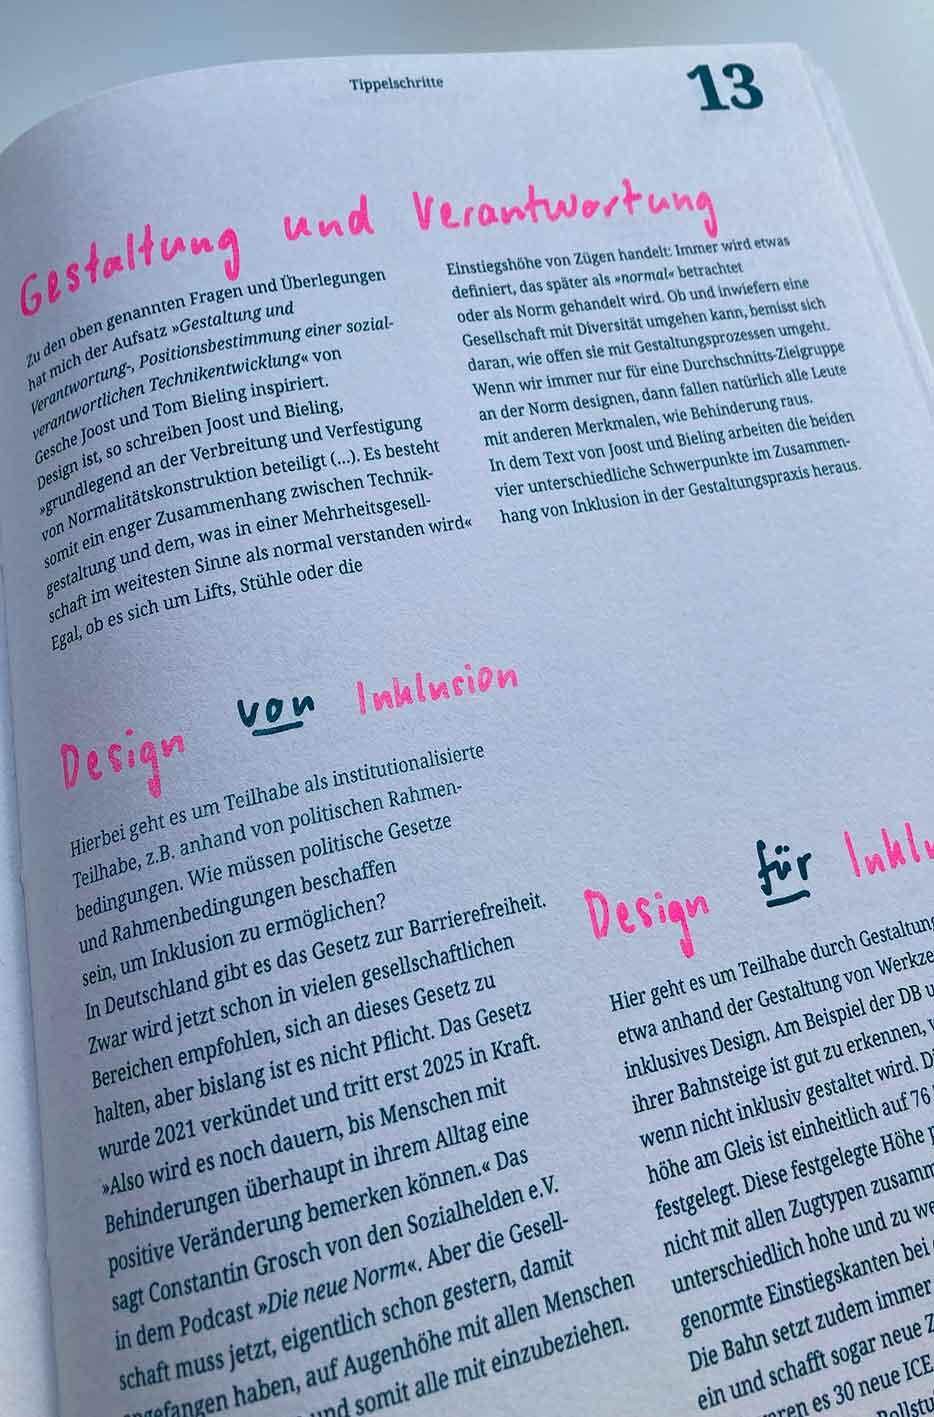 Tippelschritte
13
Gestaltung und Verantwortung
Zu den oben genannten Fragen und Überlegungen
hat mich der Aufsatz »Gestaltung und
Verantwortung-, Positionsbestimmung einer sozial-
verantwortlichen Technikentwicklung« von
Gesche Joost und Tom Bieling inspiriert.
Design ist, so schreiben Joost und Bieling,
»grundlegend an der Verbreitung und Verfestigung
von Normalitätskonstruktion beteiligt (...). Es besteht
somit ein enger Zusammenhang zwischen Technik-
gestaltung und dem, was in einer Mehrheitsgesell-
schaft im weitesten Sinne als normal verstanden wird«
Egal, ob es sich um Lifts, Stühle oder die
Einstiegshöhe von Zügen handelt: Immer wird etwas
definiert, das später als »normal« betrachtet
oder als Norm gehandelt wird. Ob und inwiefern eine
Gesellschaft mit Diversität umgehen kann, bemisst sich
daran, wie offen sie mit Gestaltungsprozessen umgeht.
Wenn wir immer nur für eine Durchschnitts-Zielgruppe
an der Norm designen, dann fallen natürlich alle Leute
mit anderen Merkmalen, wie Behinderung raus.
In dem Text von Joost und Bieling arbeiten die beiden
vier unterschiedliche Schwerpunkte im Zusammen-
hang von Inklusion in der Gestaltungspraxis heraus.
Design von Inklusion
Hierbei geht es um Teilhabe als institutionalisierte
Teilhabe, z.B. anhand von politischen Rahmen-
bedingungen. Wie müssen politische Gesetze
und Rahmenbedingungen beschaffen
sein, um Inklusion zu ermöglichen?
In Deutschland gibt es das Gesetz zur Barrierefreiheit.
Zwar wird jetzt schon in vielen gesellschaftlichen
Bereichen empfohlen, sich an dieses Gesetz zu
halten, aber bislang ist es nicht Pflicht. Das Gesetz
wurde 2021 verkündet und tritt erst 2025 in Kraft.
»Also wird es noch dauern, bis Menschen mit
Behinderungen überhaupt in ihrem Alltag eine
positive Veränderung bemerken können.« Das
sagt Constantin Grosch von den Sozialhelden e.V.
in dem Podcast »Die neue Norm«. Aber die Gesell-
schaft muss jetzt, eigentlich schon gestern, damit
angefangen haben, auf Augenhöhe mit allen Menschen
und somit alle mit einzubeziehen.
Design für Inklu
Hier geht es um Teilhabe durch Gestaltung
etwa anhand der Gestaltung von Werkze
inklusives Design. Am Beispiel der DB u
ihrer Bahnsteige ist gut zu erkennen,
wenn nicht inklusiv gestaltet wird. Di
höhe am Gleis ist einheitlich auf 76
festgelegt. Diese festgelegte Höhe p
nicht mit allen Zugtypen zusamm
unterschiedlich hohe und zu we
genormte Einstiegskanten bei
Die Bahn setzt zudem immer
ein und schafft sogar neue Z
ren es 30 neue ICE
Rollstu